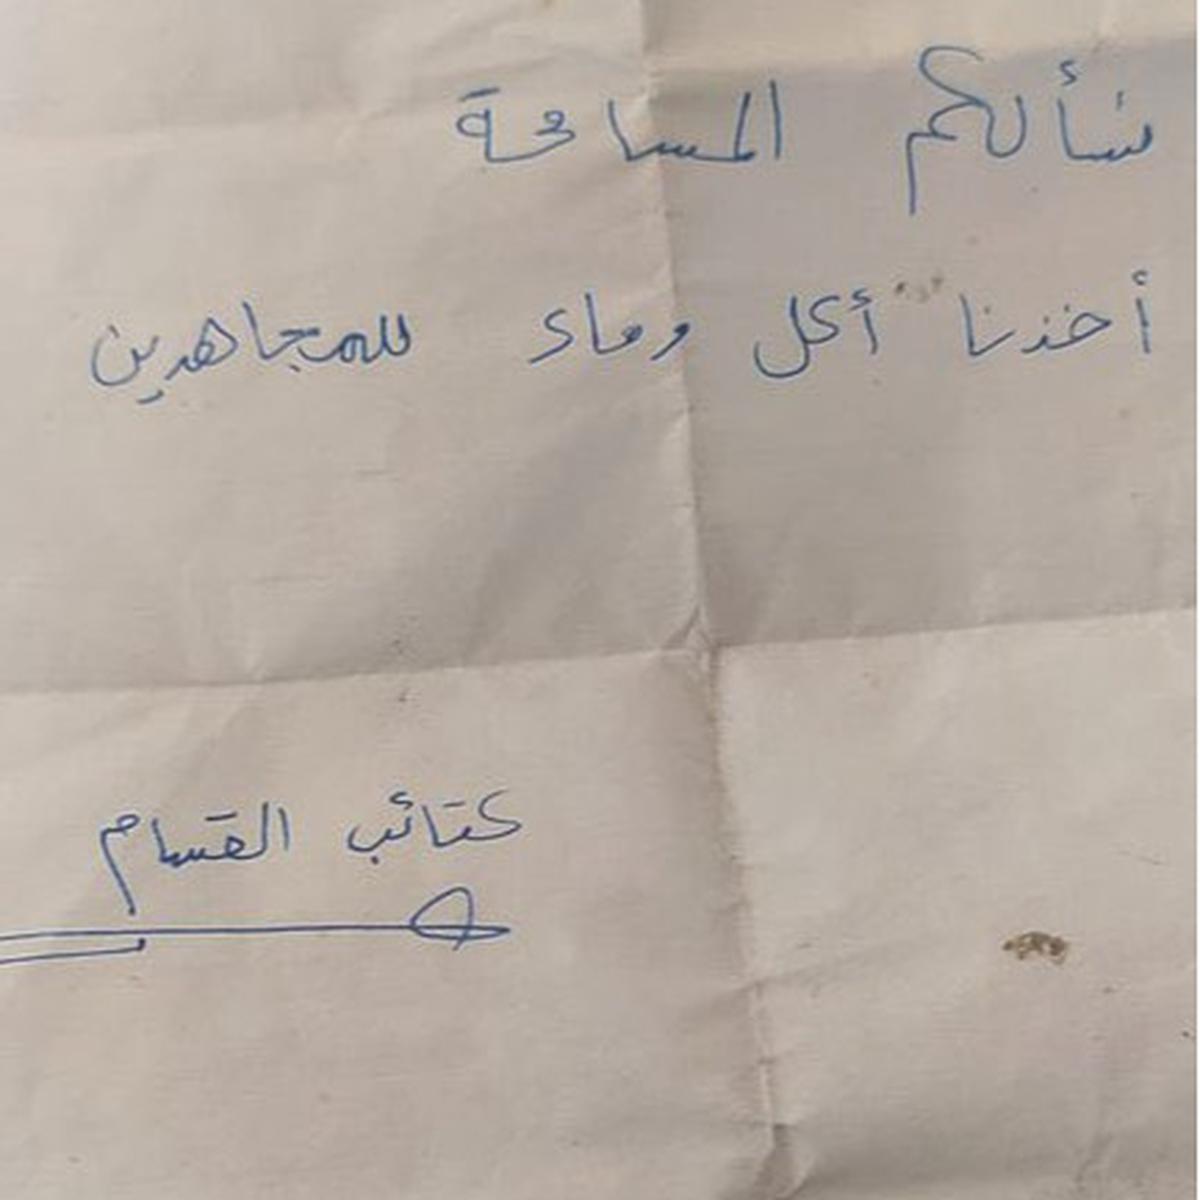 نسألكم المسامحة
أخذنا أكل وماء للمجاهدين
كتائب القسام